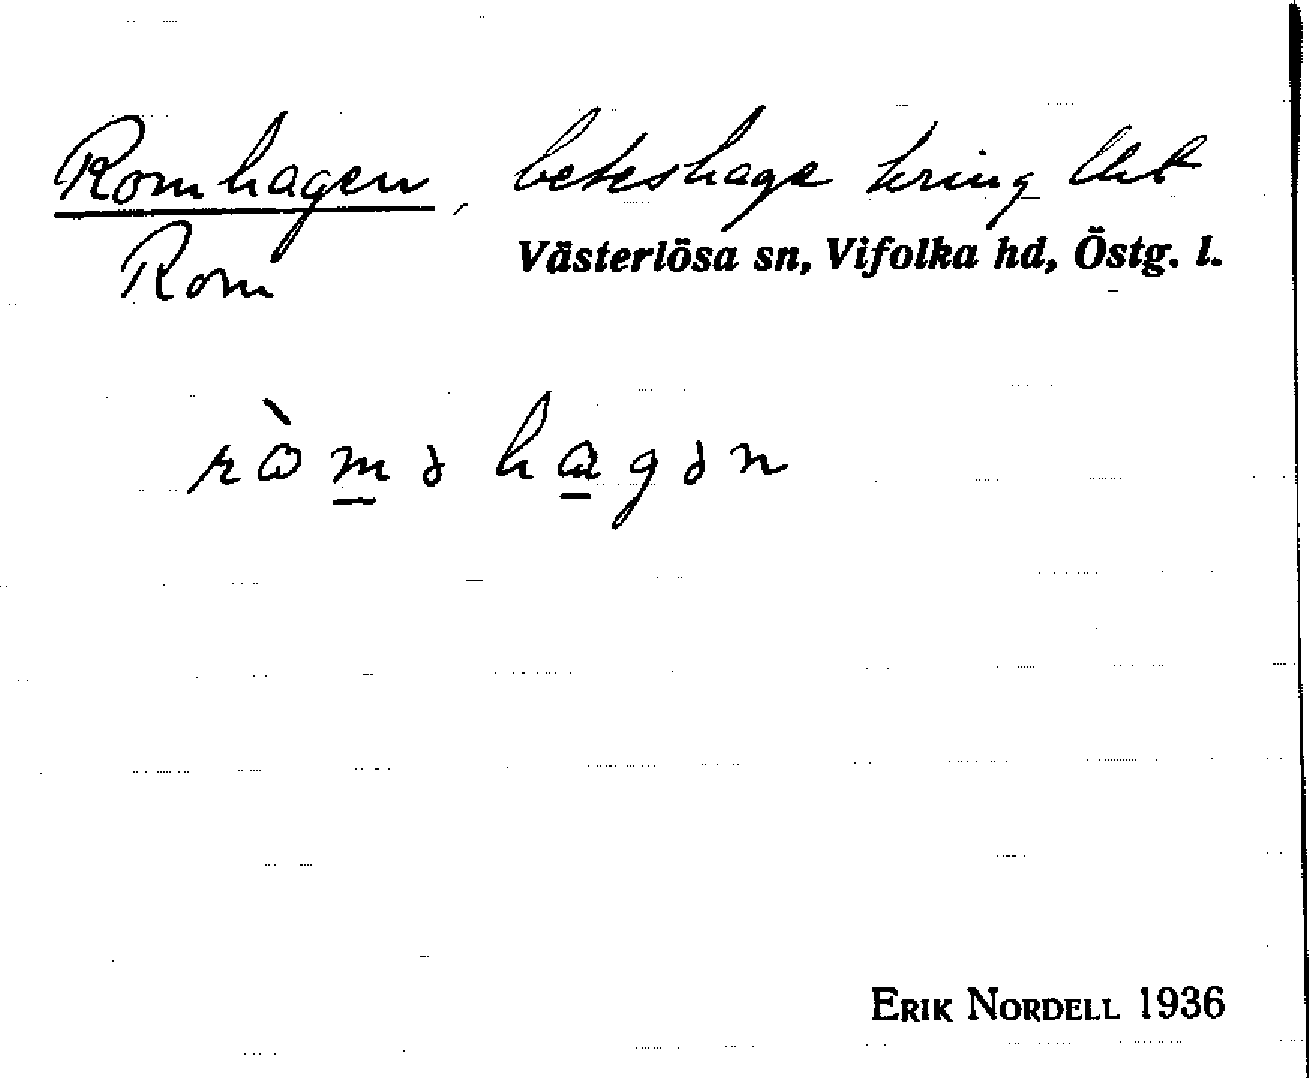 Romhagen, beteshage kring lht
Rom
Västerlösa sn, Vifolka hd, Östg. l.
ròməhagən
ERIK NORDELL 1936